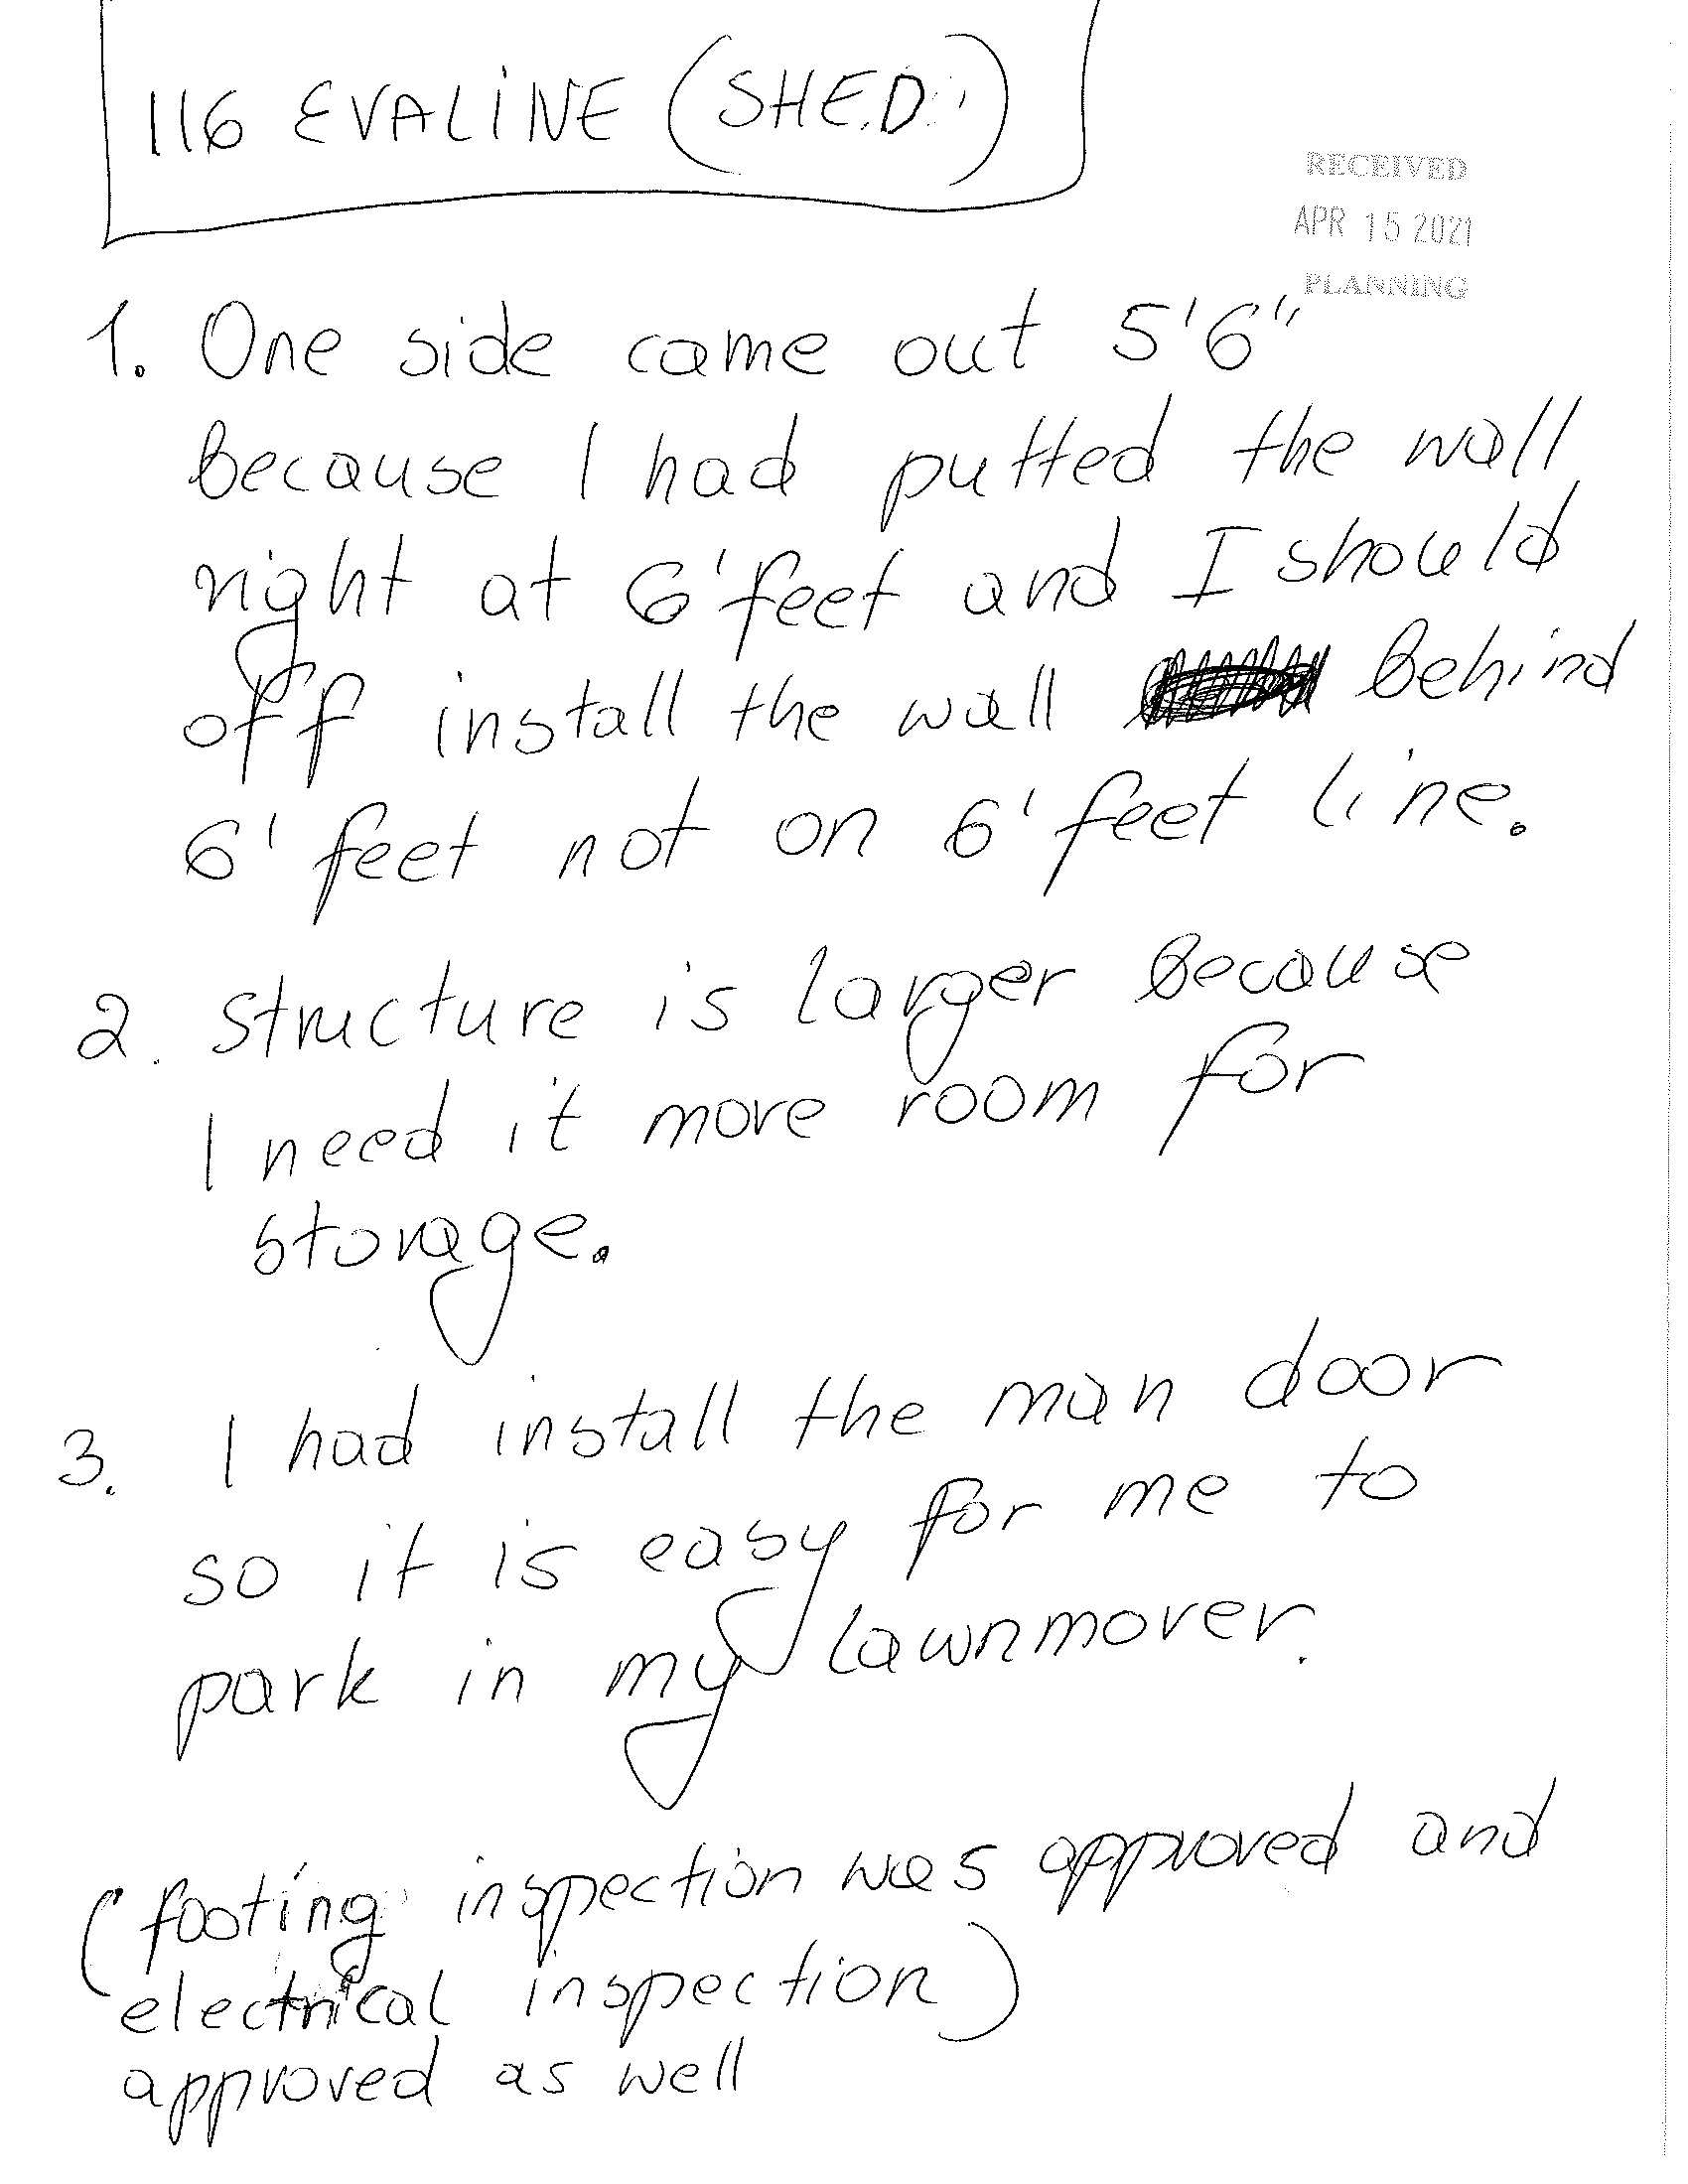 116 EVALINE (SHED)
RECEIVED
APR 15 2021
PLANNING
1. One side came out 5'6"
because I had putted the wall
right at 6' feet and I should
off install the wall behind
6' feet not on 6' feet line.
2. structure is larger because
I need it more room for
storage.
3. I had install the man door
so it is easy for me to
park in my lawnmover.
(footing inspection was approved and
electrical inspection)
approved as well